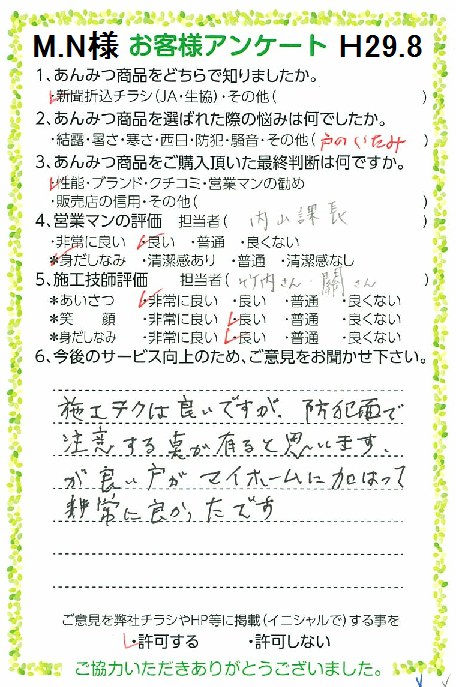 M.N様 お客様アンケート H29.8
1、あんみつ商品をどちらで知りましたか。
・新聞折込チラシ(JA・生協)・その他( )
2、あんみつ商品を選ばれた際の悩みは何でしたか。
・結露・暑さ・寒さ・西日・防犯・騒音・その他(戸のいたみ)
3、あんみつ商品をご購入頂いた最終判断は何ですか。
・性能・ブランド・クチコミ・営業マンの勧め
・販売店の信用・その他( )
4、営業マンの評価 担当者( 内山課長 )
・非常に良い ・良い ・普通 ・良くない
*身だしなみ ・清潔感あり ・普通 ・清潔感なし
5、施工技師評価 担当者( 竹内さん・關さん )
*あいさつ ・非常に良い ・良い ・普通 ・良くない
*笑 顔 ・非常に良い ・良い ・普通 ・良くない
*身だしなみ ・非常に良い ・良い ・普通 ・良くない
6、今後のサービス向上のため、ご意見をお聞かせ下さい。
施工チクは良いですが、防犯面で
注意する点が有ると思いします、
が良い戸がマイホームに加はって
非常に良かったです
ご意見を弊社チラシやHP等に掲載(イニシャルで)する事を
・許可する ・許可しない
ご協力いただきありがとうございました。